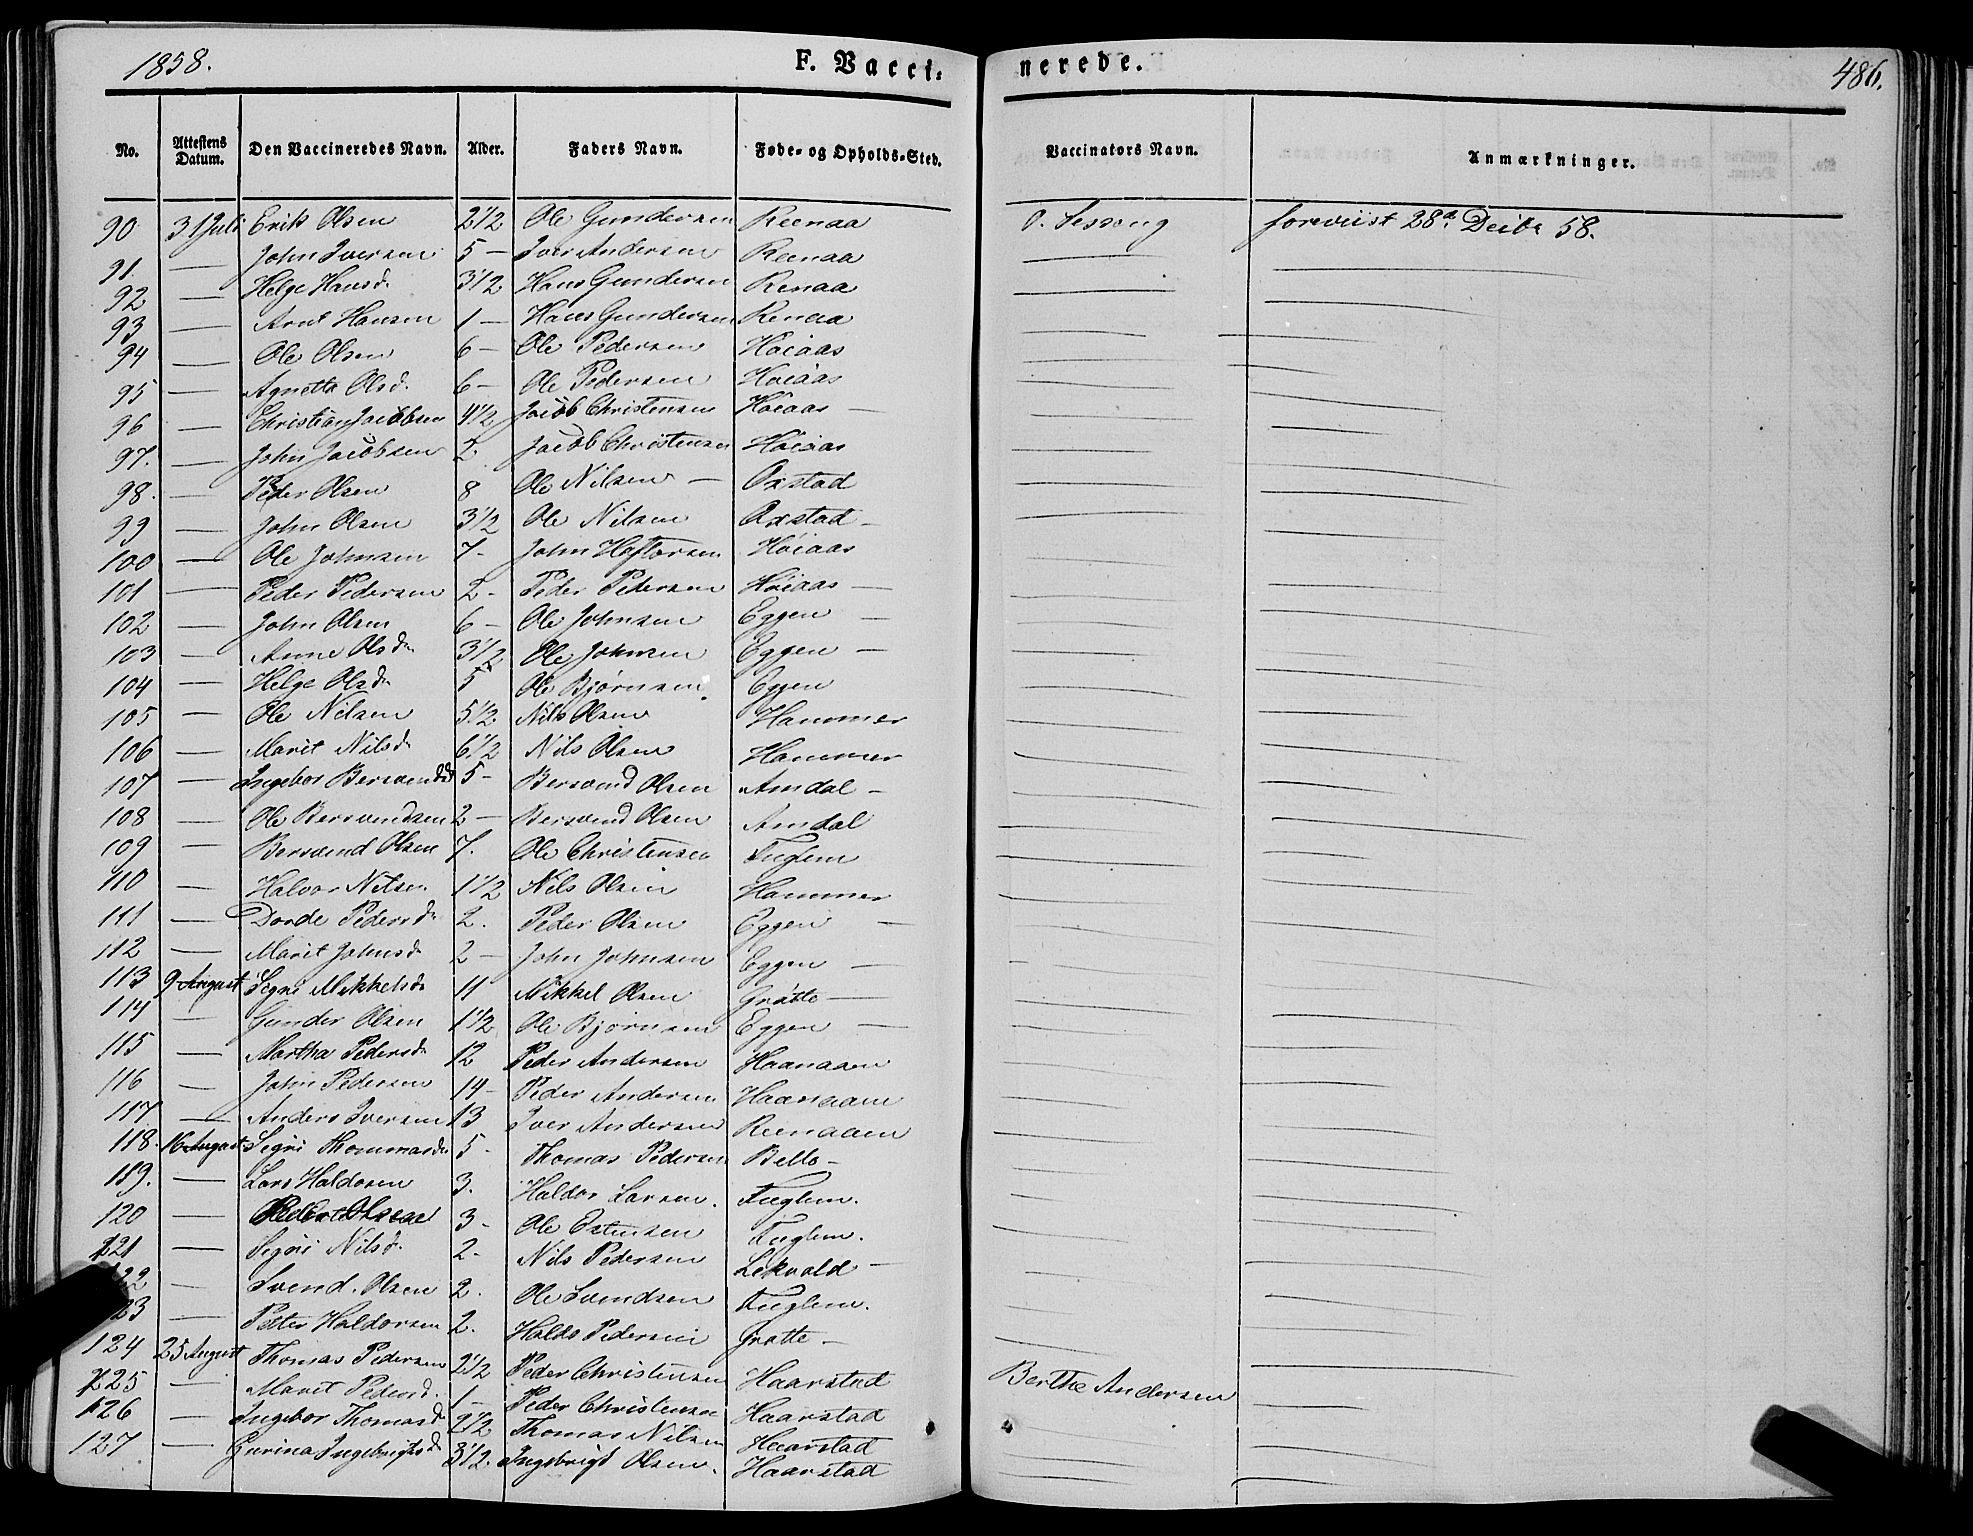 1858. F. Vaccinerede. 486.
No. Attestens Datum. Den Vaccineredes Navn. Alder. Faders Navn. Føde- og Opholds-Sted. Vaccinators Navn. Anmærkninger.
90 31 Juli Erik Olsen 2 1/2 Ole Gundersen Reenaa O. Sesseng foreviist 28d. Decbr 58.
91. — John Iversen 5 — Iver Andersen Reenaa
92 — Helge Hansd. 3 1/2 Hans Gundersen Renaa
93 — Arnt Hansen 1 — Hans Gundersen Renaa
94 — Ole Olsen 6 — Ole Pedersen Høiaas
95 — Agnette Olsd. 6 — Ole Pedersen Høiaas
96 — Christian Jacobsen 4 1/2 Jacob Christensen Høiaas —
97. — John Jacobsen 2. Jacob Christensen Høiaas
98. — Peder Olsen 8 Ole Nilsen — Oxstad
99 — John Olsen 3 1/2 Ole Nilsen Oxstad —
100 — Ole Johnsen 7 - John Haftorsen Høiaas
101 — Peder Pedersen 2 - Peder Pedersen Høiaas —
102 — John Olsen 6 — Ole Johnsen Eggen —
103 — Anne Olsd. 3 1/2 Ole Johnsen Eggen —
104 — Helge Olsd. 5 Ole Bjørnsen. Eggen
105 — Ole Nilsen 5 1/2 Nils Olsen Hammer
106 — Marit Nilsd. 6 1/2 Nils Olsen Hammer
107 — Ingebor Bersvendsd 5 - Bersvend Olsen Amdal —
108 — Ole Bersvendsen 2 — Bersvend Olsen Amdal
109 — Bersvend Olsen 7. Ole Christensen Fuglem
110 — Halvor Nilsen 1 1/2 Nils Olsen Hammer
111 — Dorde Pedersd. 2. Peder Olsen Eggen —
112 — Marit Johnsd. 2 — John Johnsen Eggen —
113 9 August Segri Mikkelsd. 11 Mikkel Olsen Grøtte —
114 — Gunder Olsen 1 1/2 Ole Bjørnsen Eggen —
115 — Martha Pedersd. 12 Peder Andersen Haanaaen
116 — John Pedersen 14 - Peder Andersen Haanaaen
117 — Anders Iversen 13 Iver Andersen Reenaaen
118. 16 August Segri Thommasd. 5 - Thomas Pedersen Bells —
119. — Lars Haldosen 3. Haldor Larsen. Fuglem.
120 — 3 - Ole Estensen Fuglem.
121 — Segri Nilsd. 2. Nils Pedersen Lekvold —
122 — Svend. Olsen 2. Ole Svendsen Fuglem.
123 — Petter Haldorsen 2. Haldo Pedersen Grøtte —
124 25 August Thomas Pedersen 2 1/2 Peder Christensen Haarstad Berthe Andersen
125 — Marit Pedersd. 1 - Peder Christensen Haarstad
126 — Ingebor Thomasd. 2 1/2 Thomas Nilsen Haarstad
127 — Gurina Ingebrigtsd. 3 1/2. Ingebrigt Olsen. Haarstad